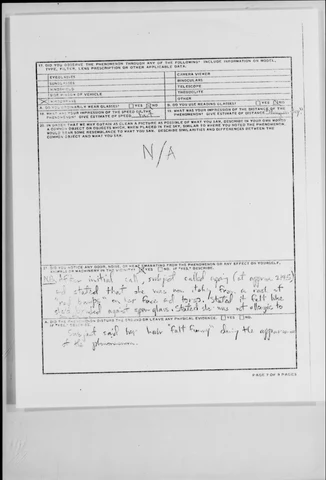 DID YOU OBSERVE THE PHENOMENON THROUGH ANY OF THE FOLLOWING? INCLUDE INFORMATION ON MODEL, TYPE, FILTER, LENS PRESCRIPTION OR OTHER APPLICABLE DATA.
EYEGLASSES CAMERA VIEWER
SUNGLASSES BINOCULARS
WINDSHIELD TELESCOPE
SIDE WINDOW OF VEHICLE THEODOLITE
OTHER
DO YOU ORDINARILY WEAR GLASSES? YES NO DO YOU USE READING GLASSES? YES NO
WHAT WAS YOUR IMPRESSION OF THE SPEED OF THE PHENOMENON? GIVE ESTIMATE OF SPEED
WHAT WAS YOUR IMPRESSION OF THE DISTANCE OF THE PHENOMENON? GIVE ESTIMATE OF DISTANCE
IN ORDER THAT WE MAY OBTAIN AS CLEAR A PICTURE AS POSSIBLE OF WHAT YOU SAW, DESCRIBE IN YOUR OWN WORDS
A COMMON OBJECT OR OBJECTS WHICH, WHEN PLACED IN THE SKY, SIMILAR TO WHERE YOU NOTED THE PHENOMENON,
WOULD BEAR SOME RESEMBLANCE TO WHAT YOU SAW. DESCRIBE SIMILARITIES AND DIFFERENCES BETWEEN THE
COMMON OBJECT AND WHAT YOU SAW.
N/A
DID YOU NOTICE ANY ODOR, NOISE, OR HEAT EMANATING FROM THE PHENOMENON OR ANY EFFECT ON YOURSELF,
ANIMALS OR MACHINERY IN THE VICINITY? YES NO IF "YES", DESCRIBE.
After initial call, subject called again (at approx
and stated that she was itchy from a rash of
"red bumps" on her face and torso. Stated it felt like
against spun glass. Stated she was not allergic to
DID THE PHENOMENON DISTURB THE GROUND OR LEAVE ANY PHYSICAL EVIDENCE? YES NO
IF "YES", DESCRIBE.
Subject said her hair "felt funny" during the appearance
of the phenomenon.
PAGE 7 OF 9 PAGES